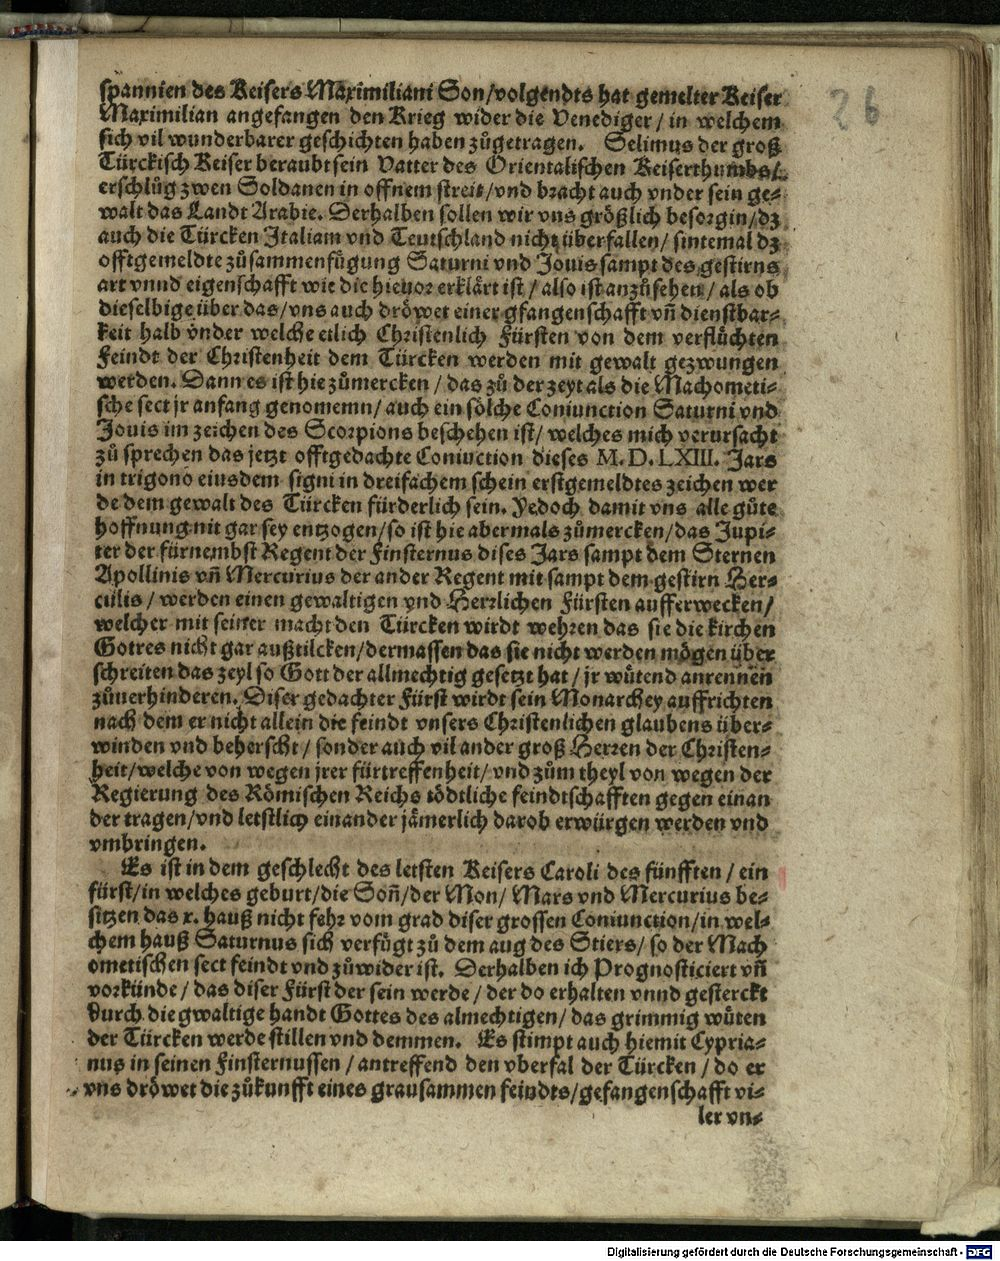 spannien des Keisers Maximiliani Son/volgendts hat gemelter Keiser
Maximilian angefangen den Krieg wider die Venediger / in welchem
sich vil wunderbarer geschichten haben zůgetragen. Selimus der groß
Türckisch Keiser beraubt sein Vatter des Orientalischen Keiserthumbs/
erschlůg zwen Soldanen in offnem streit/vnd bracht auch vnder sein ge-
walt das Landt Arabie. Derhalben sollen wir vns größlich besorgin/dz
auch die Türcken Italiam vnd Teutschland nicht überfallen/ sintemal dz
offtgemeldte zůsammenfůgung Saturni vnd Jouis sampt des gestirns
art vnnd eigenschafft wie die hieuor erklärt ist / also ist anzůsehen / als ob
dieselbige über das/vns auch dröwet einer gfangenschafft vñ dienstbar-
keit halb vnder welche etlich Christenlich Fürsten von dem verflůchten
Feindt der Christenheit dem Türcken werden mit gewalt gezwungen
werden. Dann es ist hie zůmercken / das zů der zeyt als die Machometi-
sche sect jr anfang genomemn/ auch ein sölche Coniunction Saturni vnd
Jouis im zeichen des Scorpions beschehen ist/ welches mich verursacht
zů sprechen das jetzt offtgedachte Coniuction dieses M. D. LXIII. Jars
in trigono eiusdem signi in dreifachem schein erstgemeldtes zeichen wer
de dem gewalt des Türcken fürderlich sein. Yedoch damit vns alle gůte
hoffnung nit gar sey entzogen/so ist hie abermals zůmercken/das Jupi-
ter der fürnembst Regent der Finsternus dises Jars sampt dem Sternen
Apollinis vñ Mercurius der ander Regent mit sampt dem gestirn Her-
culis / werden einen gewaltigen vnd Herrlichen Fürsten aufferwecken/
welcher mit seiner macht den Türcken wirdt wehren das sie die kirchen
Gottes nicht gar außtilcken/dermassen das sie nicht werden mögen über
schreiten das zeyl so Gott der allmechtig gesetzt hat / jr wůtend anrennen
zůuerhinderen. Diser gedachter Fürst wirdt sein Monarchey auffrichten
nach dem er nicht allein die feindt vnsers Christenlichen glaubens über-
winden vnd beherscht / sonder auch vil ander groß Herren der Christen-
heit/welche von wegen jrer fürtreffenheit/ vnd zům theyl von wegen der
Regierung des Römischen Reichs tödtliche feindtschafften gegen einan
der tragen/vnd letstlich einander jämerlich darob erwürgen werden vnd
vmbringen.
Es ist in dem geschlecht des letsten Keisers Caroli des fünfften / ein
fürst/in welches geburt/die Soñ/der Mon/ Mars vnd Mercurius be-
sitzen das x. hauß nicht fehr vom grad diser grossen Coniunction/in wel-
chem hauß Saturnus sich verfůgt zů dem aug des Stiers/ so der Mach
ometischen sect feindt vnd zůwider ist. Derhalben ich Prognosticiert vñ
vorkünde / das diser Fürst der sein werde / der do erhalten vnnd gesterckt
durch die gwaltige handt Gottes des almechtigen/ das grimmig wůten
der Türcken werde stillen vnd demmen. Es stimpt auch hiemit Cypria-
nus in seinen Finsternussen / antreffend den vberfal der Türcken / do er
vns dröwet die zůkunfft eines grausammen feindts/gefangenschafft vi-
ler vn-
26
Digitalisierung gefördert durch die Deutsche Forschungsgemeinschaft - DFG